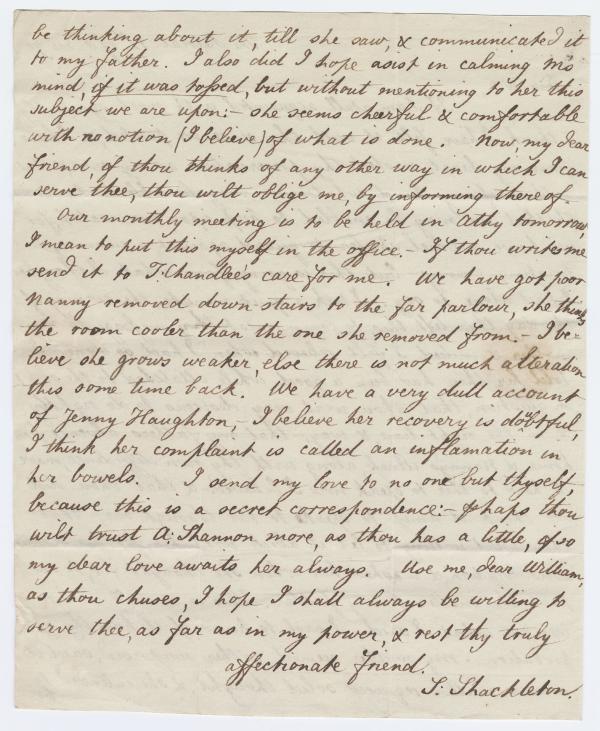 be thinking about it, till she saw, & communicated it
to my father. I also did I hope asist in calming M's
mind, if it was tossed, but without mentioning to her this
subject we are upon:- she seems cheerful & comfortable
with no notion (I believe) of what is done. Now, my dear
friend, if thou thinks of any other way in which I can
serve thee, thou wilt oblige me, by informing thereof.
Our monthly meeting is to be held in Athy tomorrow,
I mean to put this myself in the office.- If thou writes me
send it to T. Chandlee's care for me. We have got poor
Nanny removed down stairs to the far parlour, she thinks
the room cooler than the one she removed from.- I be-
lieve she grows weaker, else there is not much alteration
this some time back. We have a very dull account
of Jenny Haughton,- I believe her recovery is doubtful,
I think her complaint is called an inflamation in
her bowels. I send my love to no one but thyself,
because this is a secret correspondence:- phaps thou
wilt trust A: Shannon more, as thou has a little, if so
my dear love awaits her always. Use me, dear William,
as thou chuses, I hope I shall always be willing to
serve thee, as far as in my power, & rest thy truly
affectionate friend.
S: Shackleton.